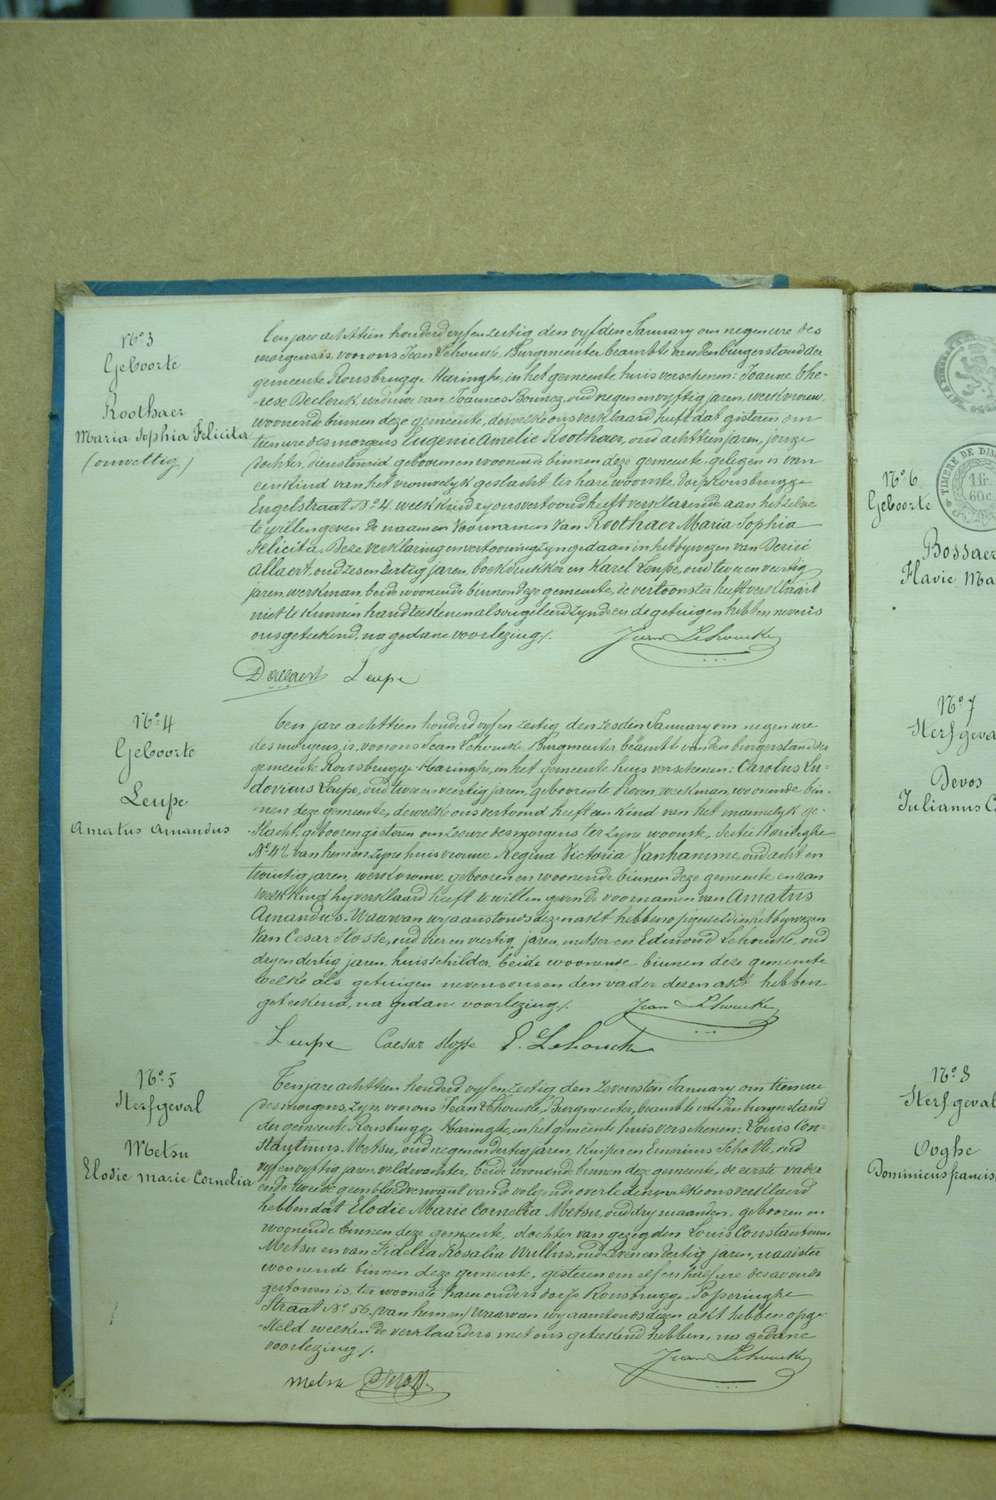 N°. 3
Geboorte
Roothaer
Maria Sophia Felicita
(onwettig)
Ten jare achttien honderd vyf en zestig den vyfden January om negen ure des
morgens is voor ons Jean Lehoucke, Burgmeester beambte van den burgerstand der
gemeente Rousbrugge-Haringhe, in het gemeente huis verschenen: Joanne The-
-rese Declerck weduwe van Joannes Bouncz, oud negen en vyftig jaren, werkvrouw,
woonende binnen deze gemeente, dewelke ons verklaard heeft dat gisteren om
tien ure des morgens Eugenie Amelie Roothaer, oud achttien jaren, jonge
dochter, dienstmeid, geboren en woonende binnen deze gemeente gelegen is van
een kind van het vrouwelyk geslacht ter hare woonste, dorp Rousbrugge
Engelstraat N° 4. welk kind zy ons vertoond heeft verklarende aan hetzelve
te willen geven de naam en voornamen van Roothaer Maria Sophia
Felicita. Deze verklaring en vertooning zyn gedaan in het bywezen van Desiré
Allaert, oud zes en dertig jaren, boekdrukker en Karel Leupe, oud twee en veertig
jaren, werkman, beide woonende binnen deze gemeente, de vertoonster heeft verklaard
niet te kunnen handteekenen als ongeleerd zynde en de getuigen hebben nevens
ons geteekend, na gedane voorlezing /.
Jean Lehoucke
D. Allaert Leupe
N°. 4
Geboorte
Leupe
Amatus Amandus
Ten jare achttien honderd vyf en zestig den zesden January om negen ure
des morgens, is voor ons Jean Lehoucke, Burgmeester beambte van den burgerstand der
gemeente Rousbrugge-Haringhe, in het gemeente huis verschenen: Carolus Lu-
dovicus Leupe, oud twee en veertig jaren, geboren te Proven, werkman, woonende bin-
-nen deze gemeente, dewelke ons vertoond heeft een kind van het mannelyk ge-
-slacht, geboren gisteren om zes ure des morgens ter zyne woonste, Sectie Haringhe
N° 42 van hem en zyne huisvrouwe Regina Victoria Vanhamme, oud acht en
twintig jaren, werkvrouw, geboren en woonende binnen deze gemeente en aan
welk kind hy verklaard heeft te willen geven de voornamen van Amatus
Amandus. Waarvan wy aanstonds dezen akt hebben opgesteld in het bywezen
van Cesar Hosse, oud vier en veertig jaren, metser en Edmond Lehoucke, oud
dry en dertig jaren, huisschilder, beide woonende binnen deze gemeente
welke als getuigen nevens ons en den vader dezen akt hebben
geteekend, na gedane voorlezing /.
Jean Lehoucke
Leupe Caesar Hosse E. Lehoucke
N°. 5
Sterfgeval
Metsu
Elodie Marie Cornelia
Ten jare achttien honderd vyf en zestig den zevensten January om tien ure
des morgens, zyn voor ons Jean Lehoucke, Burgmeester, beambte van den burgerstand
der gemeente Rousbrugge-Haringhe, in het gemeente huis verschenen: Louis Con-
stantinus Metsu, oud negen en dertig jaren, kuiper en Eugenius Scholle, oud
vyf en vyftig jaren, veldwachter, beide woonende binnen deze gemeente, de eerste vader
en de tweede geen bloedverwant van de volgende overledene, welke ons verklaard
hebben dat Elodie Marie Cornelia Metsu, oud dry maanden, geboren en
woonende binnen deze gemeente, dochter van gezegden Louis Constantinus
Metsu en van Fidelia Rosalia Wullus, oud zeven en dertig jaren, naaister
woonende binnen deze gemeente, gisteren om elf en half ure des avonds
gestorven is, ter woonste haren ouders dorp Rousbrugge Poperinghe
Straat N° 56, van hem en / Waarvan wy aanstonds dezen akt hebben opge-
-steld welken de verklaarders met ons geteekend hebben, na gedane
voorlezing /.
Jean Lehoucke
Metsu
N°. 6
Geboorte
Bossaer
Flavie Ma
TIMBRE DE DIM
1 fr.
60 c.
N°. 7
Sterfgeva
Devos
Julianus C
N°. 8
Sterfgeval
Ooghe
Dominicus francis